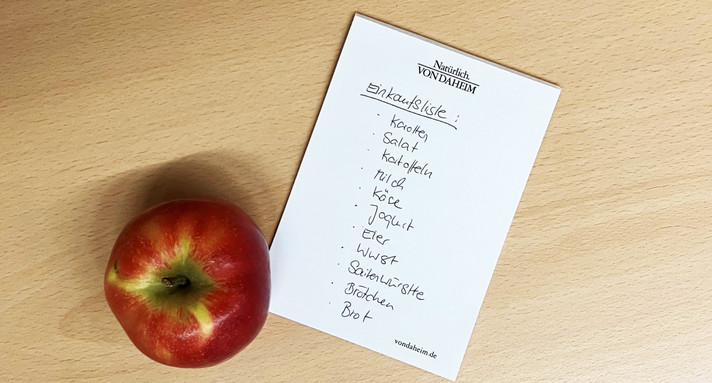 Natürlich.
VON DAHEIM
Einkaufsliste:
· Karotten
· Salat
· Kartoffeln
· Milch
· Käse
· Joghurt
· Eier
· Wurst
· Saitenwürstle
· Brötchen
· Brot
vondaheim.de